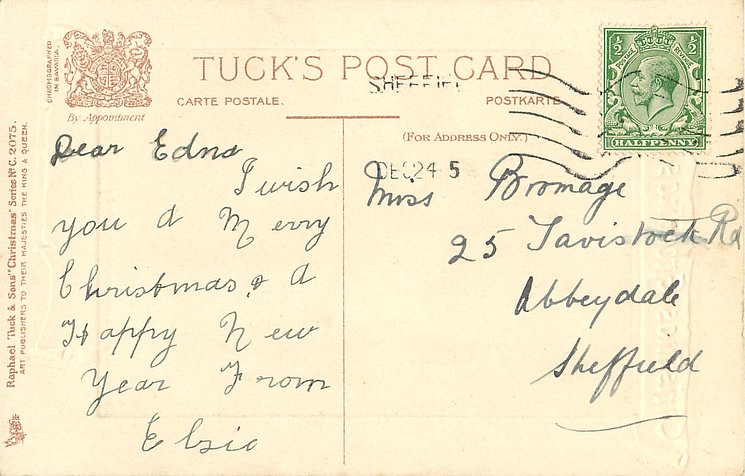 CHROMOGRAPHED
IN BAVARIA.
By Appointment
TUCK'S POST CARD
CARTE POSTALE.
POSTKARTE
(FOR ADDRESS ONLY.)
Raphael Tuck & Sons' "Christmas" Series No C. 2075.
ART PUBLISHERS TO THEIR MAJESTIES THE KING & QUEEN.
1/2
1/2
HALFPENNY
SHEFFIEL
DEC24 5
Dear Edna
I wish
you a Merry
Christmas & a
Happy New
Year From
Elsie
Miss Bromage
25 Tavistock Rd
Abbeydale
Sheffield